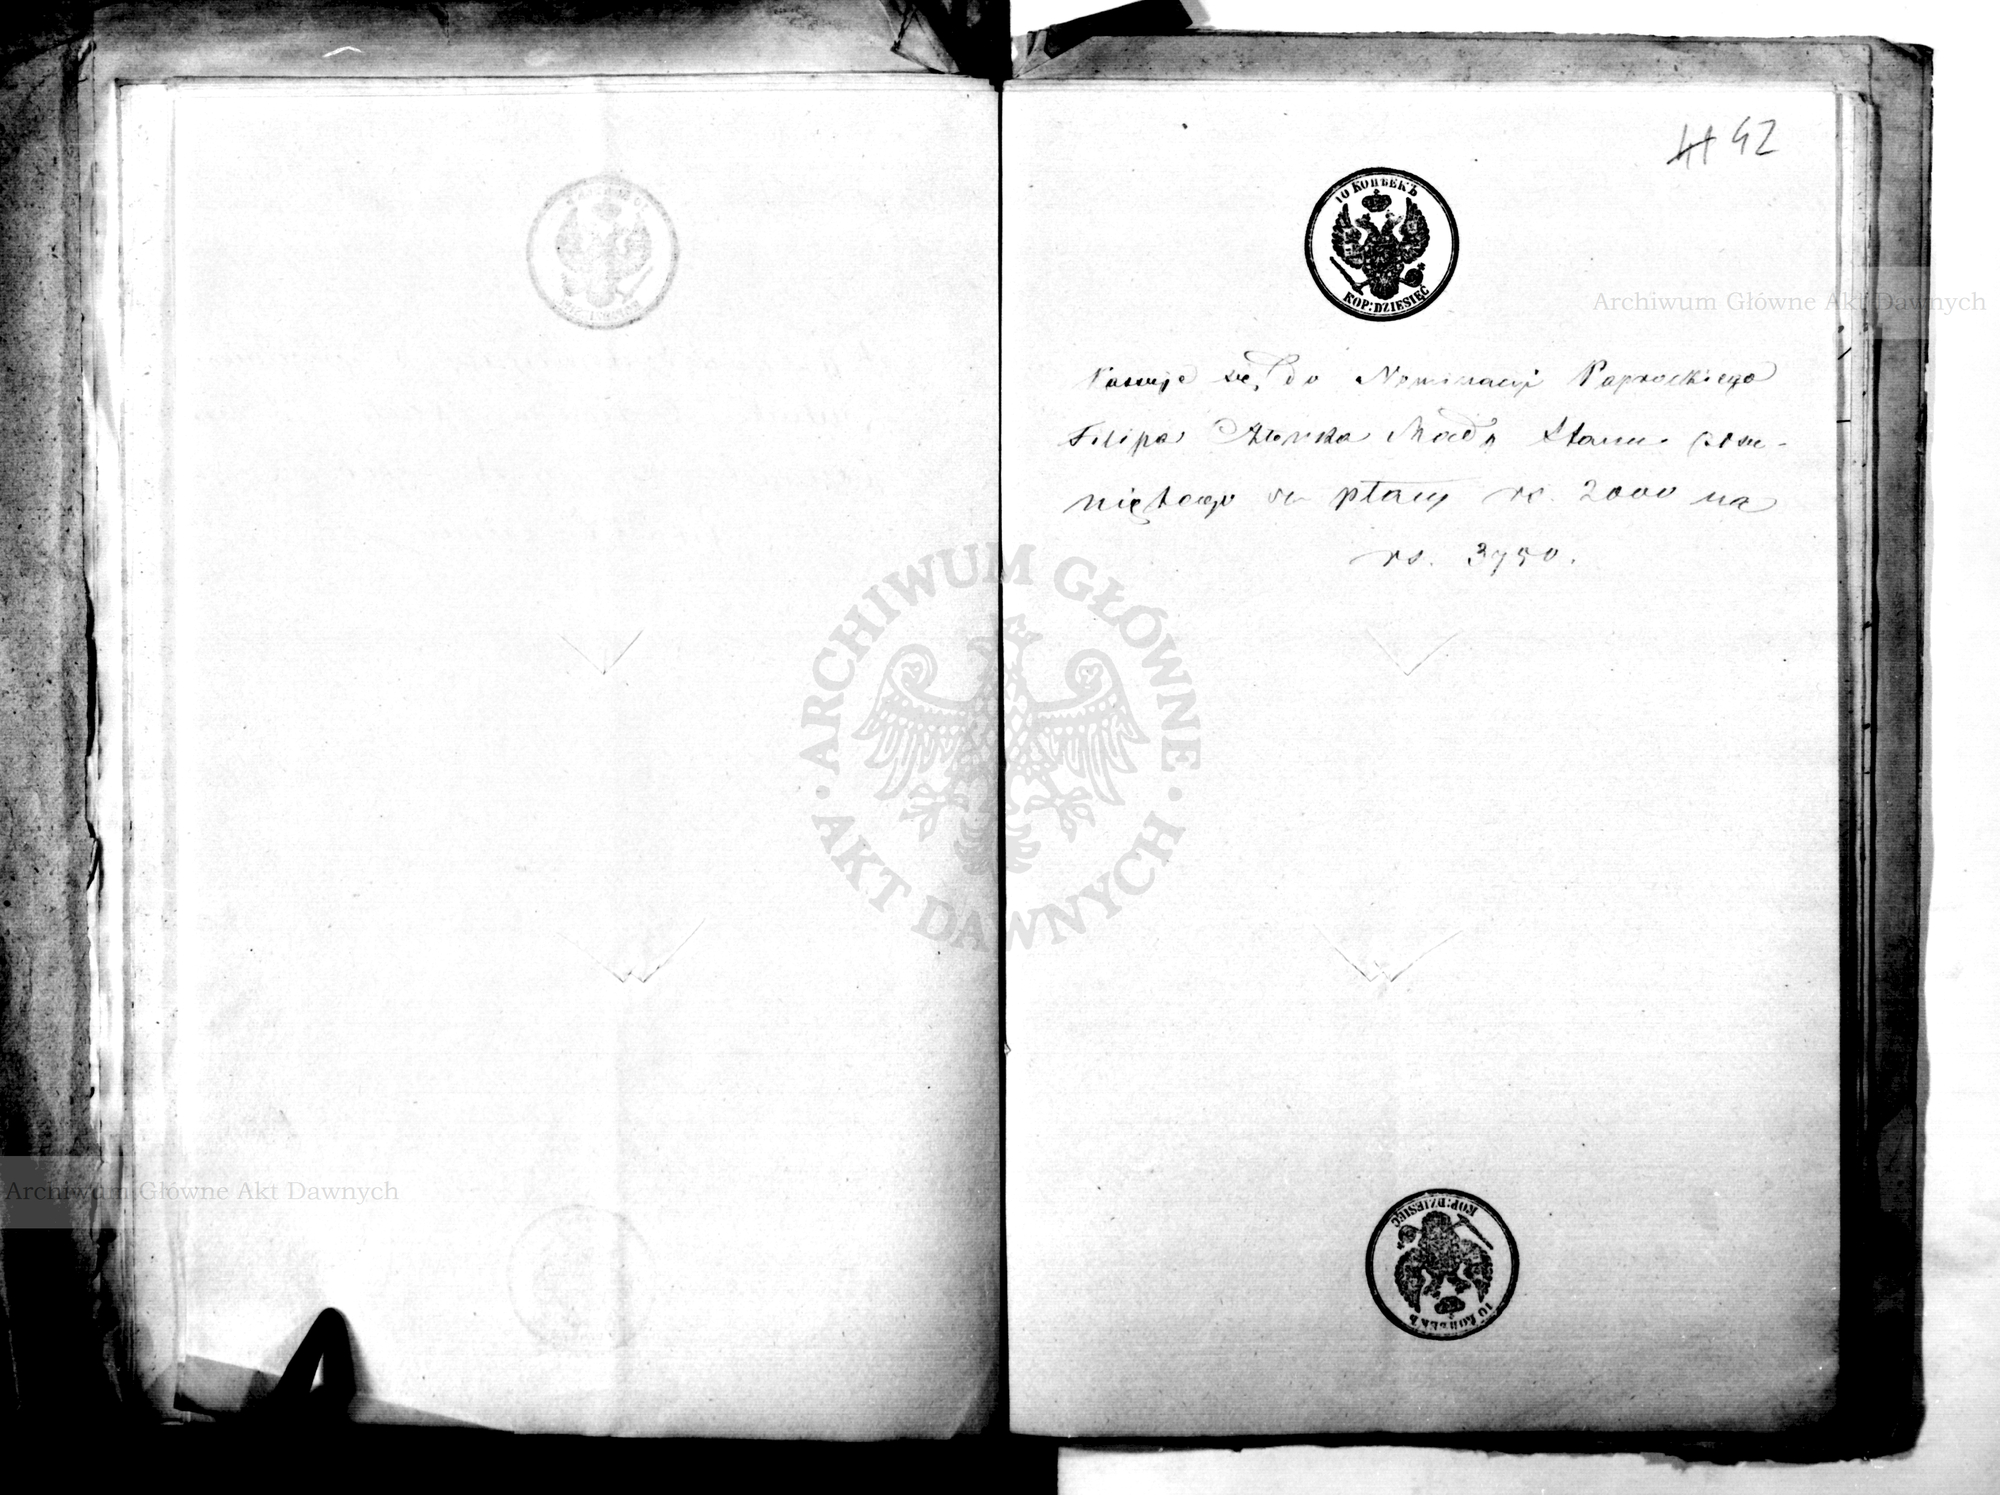 42
10 КОПѢЕКЪ
KOP: DZIESIĘĆ
Archiwum Główne Akt Dawnych
Kassuje się do Nominacyi Paprockiego
Filipa Członka Rady Stanu posu-
niętego z płacy rs. 2000 na
rs. 3750.
ARCHIWUM GŁÓWNE
AKT DAWNYCH
Archiwum Główne Akt Dawnych
KOP: DZIESIĘĆ
10 КОПѢЕКЪ